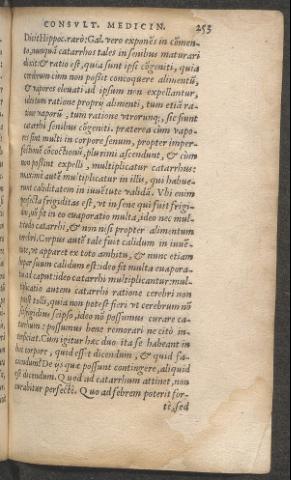 CONSVLT. MEDICIN. 253
Dicit Hippoc. rarò: Gal. vero exponēs in cōmen-
to, nunquā catarrhos tales in senibus maturari
dixit: & ratio est, quia sunt ipsi cōgeniti, quia
cerebrum cùm non possit concoquere alimentū,
& vapores eleuati ad ipsum non expellantur,
ratione proprij alimenti, tum etiā ra-
tione vaporū, tum ratione vtrorunq;, sic fiunt
catarrhi senibus cōgeniti. præterea cùm vapo-
res sint multi in corpore senum, propter imper-
fectionē cōcoctionū, plurimi ascendunt, & cùm
non possint expelli, multiplicatur catarrhus:
maximè autē multiplicatur in illis, qui habue-
runt caliditatem in iuuētute validā. Vbi enim
posita frigiditas est, vt in sene qui fuit frigi-
dus, nō fit in eo euaporatio multa, ideo nec mul-
ti catarrhi, & non nisi propter alimentum
cerebri. Corpus autē tale fuit calidum in iuuē-
tute, vt apparet ex toto ambitu, & nunc etiam
hepar suum calidum est: ideo fit multa euapora-
tio ad caput: ideo catarrhi multiplicantur: mul-
tiplicatio autem catarrhi ratione cerebri non
potest tolli, quia non potest fieri vt cerebrum nō
sit frigidius seipso, ideo nō possumus curare ca-
tarrhum: possumus bene remorari ne citò in-
terficiat. Cum igitur hæc duo ita se habeant in
hoc corpore, quid essit dicendum, & quid fa-
ciendum? De ijs quæ possunt contingere, aliquid
est dicendum. Quod ad catarrhum attinet, non
curabitur perfectè. Quo ad febrem poterit for-
tè, sed